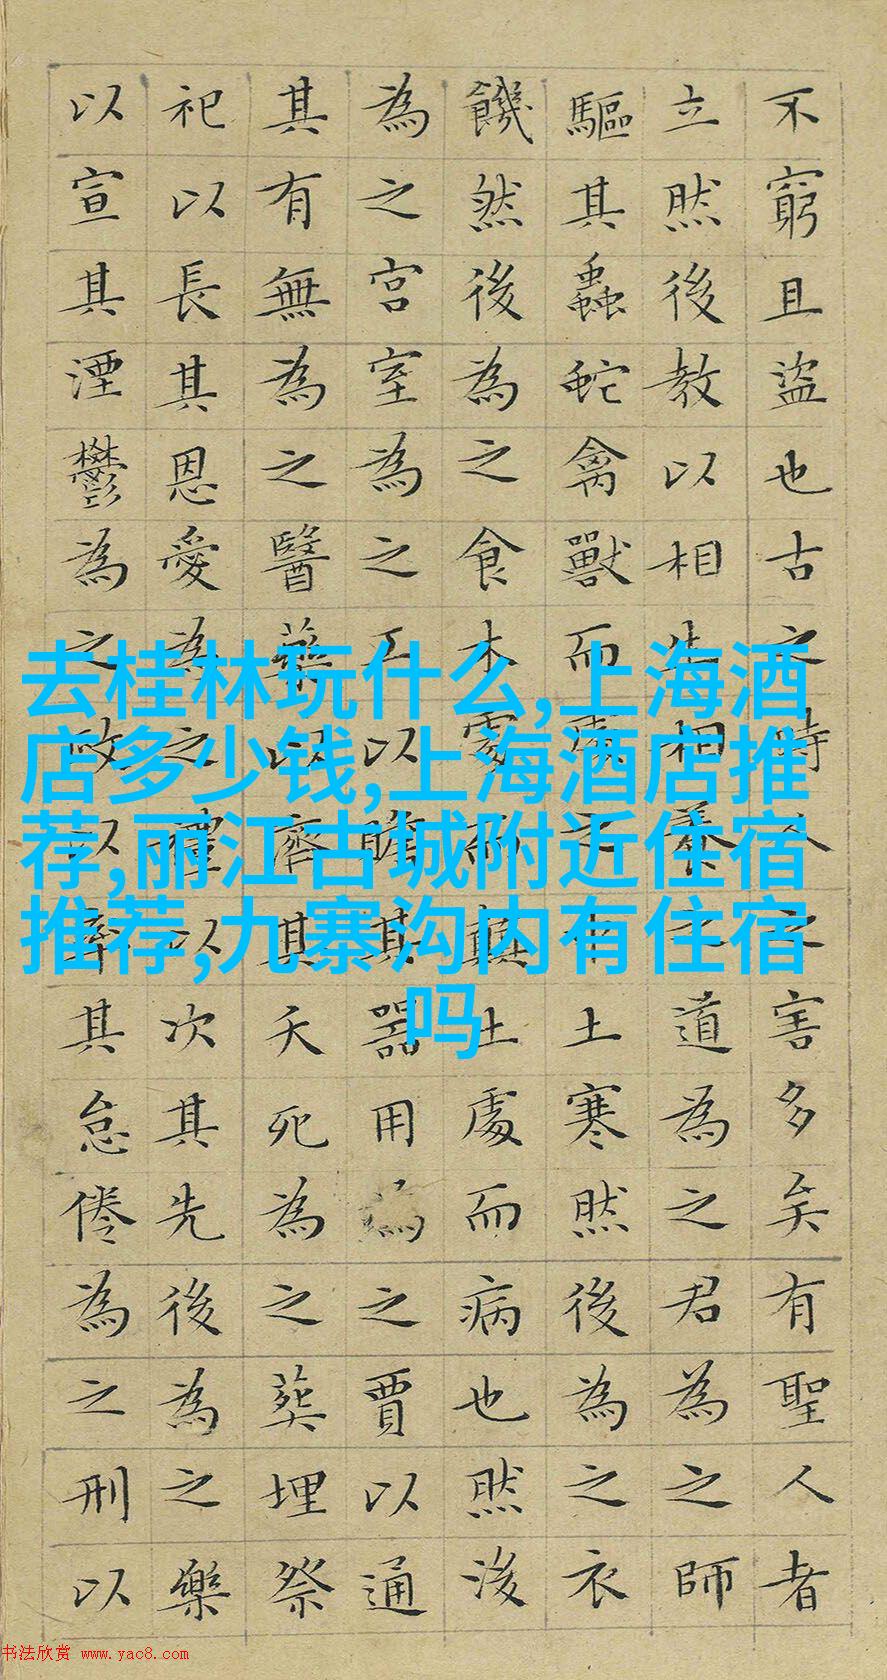 不窮且盜也古之時人之害多矣有聖人者
立然後教以相生相養之道為之君為之師
驅其蟲蛇禽獸而處之中土寒然後為之衣
饑然後為之食木處而顛土處而病也然後
為之宮室為之工以贍其器用為之賈以通
其有無為之醫藥以濟其夭死為之葬埋祭
祀以長其恩愛為之禮以次其先後為之樂
以宣其湮鬱為之政以率其怠倦為之刑以
去桂林玩什么,上海酒
店多少钱,上海酒店推
荐,丽江古城附近住宿
推荐,九寨沟内有住宿
吗
书法欣赏 www.yac8.com